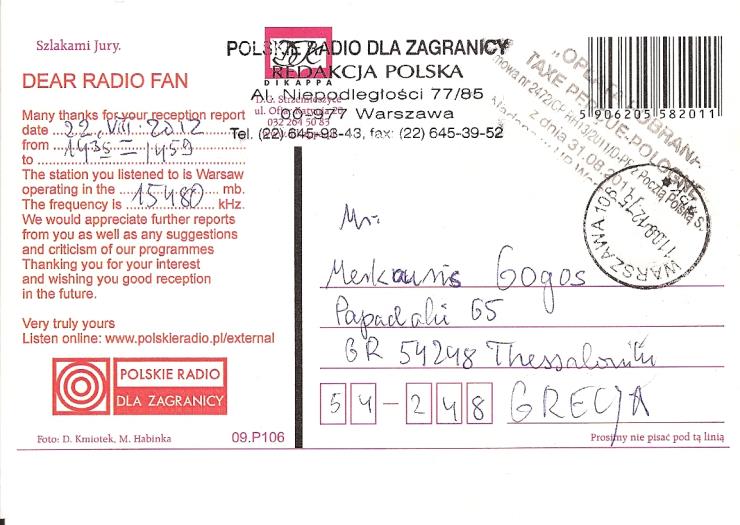 Szlakami Jury.
POLSKIE RADIO DLA ZAGRANICY
REDAKCJA POLSKA
DIKAPPA
Al. Niepodległości 77/85
00-977 Warszawa
Tel. (22) 645-93-43, fax: (22) 645-39-52
D.G. Strzemieszyce
032 264 50 85
5906205582011
TAXE PERÇUE-POLOGNE
z dnia 31.08.2011
Pocztą Polską
WARSZAWA 106
DEAR RADIO FAN
Many thanks for your reception report
date 22.VIII.2012
from 1935 =
to 1459
The station you listened to is Warsaw
operating in the mb.
The frequency is 15480 kHz.
We would appreciate further reports
from you as well as any suggestions
and criticism of our programmes
Thanking you for your interest
and wishing you good reception
in the future.
Very truly yours
Listen online: www.polskieradio.pl/external
POLSKIE RADIO
DLA ZAGRANICY
Foto: D. Kmiotek, M. Habinka
09.P106
Mr.
Merkouris Gogos
Papadaki 65
GR 54248 Thessaloniki
54-248 GRECJA
Prosimy nie pisać pod tą linią